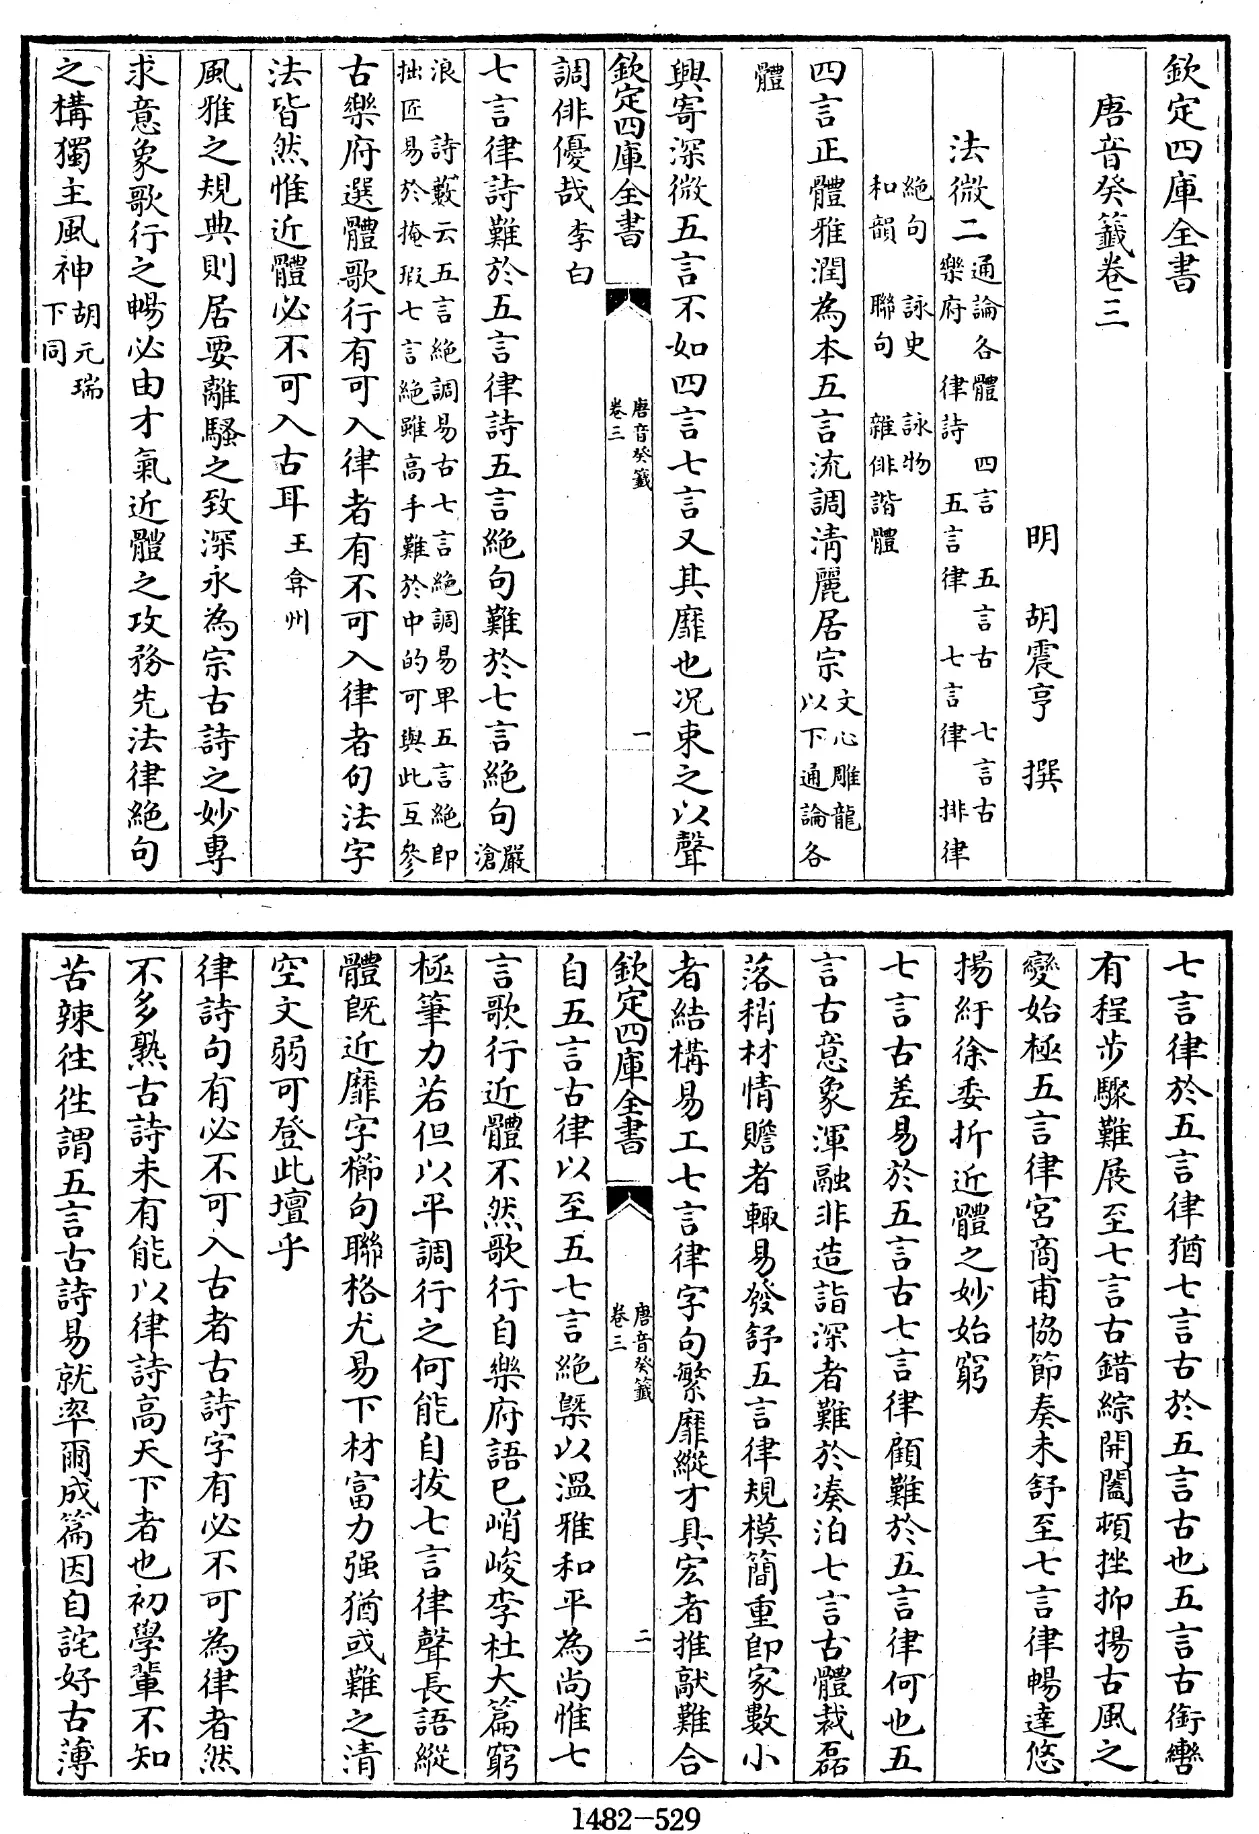 欽定四庫全書
唐音癸籤卷三
明 胡震亨 撰
法微二 通論各體 四言 五言古 七言古
樂府 律詩 五言律 七言律 排律
絶句 詠史 詠物
和韻 聯句 雜俳諧體
四言正體雅潤為本五言流調清麗居宗文心雕龍
以下通論各
體
興寄深微五言不如四言七言又其靡也况束之以聲
欽定四庫全書
唐音癸籤
卷三
一
調俳優哉李白
七言律詩難於五言律詩五言絶句難於七言絶句嚴
滄
浪 詩藪云五言絶調易古七言絶調易卑五言絶即
拙匠易於掩瑕七言絶雖高手難於中的可與此互參
古樂府選體歌行有可入律者有不可入律者句法字
法皆然惟近體必不可入古耳王弇州
風雅之規典則居要離騷之致深永為宗古詩之妙專
求意象歌行之暢必由才氣近體之攻務先法律絶句
之構獨主風神胡元瑞
下同
七言律於五言律猶七言古於五言古也五言古銜轡
有程步驟難展至七言古錯綜開闔頓挫抑揚古風之
變始極五言律宫商甫協節奏未舒至七言律暢達悠
揚紆徐委折近體之妙始窮
七言古差易於五言古七言律顧難於五言律何也五
言古意象渾融非造詣深者難於凑泊七言古體裁磊
落稍材情贍者輒易發舒五言律規模簡重即家數小
者結構易工七言律字句繁靡縱才具宏者推敲難合
欽定四庫全書
唐音癸籤
卷三
二
自五言古律以至五七言絶槩以温雅和平為尚惟七
言歌行近體不然歌行自樂府語已峭峻李杜大篇窮
極筆力若但以平調行之何能自拔七言律聲長語縱
體既近靡字櫛句聯格尤易下材富力强猶或難之清
空文弱可登此壇乎
律詩句有必不可入古者古詩字有必不可為律者然
不多熟古詩未有能以律詩高天下者也初學輩不知
苦辣往往謂五言古詩易就率爾成篇因自詫好古薄
1482-529